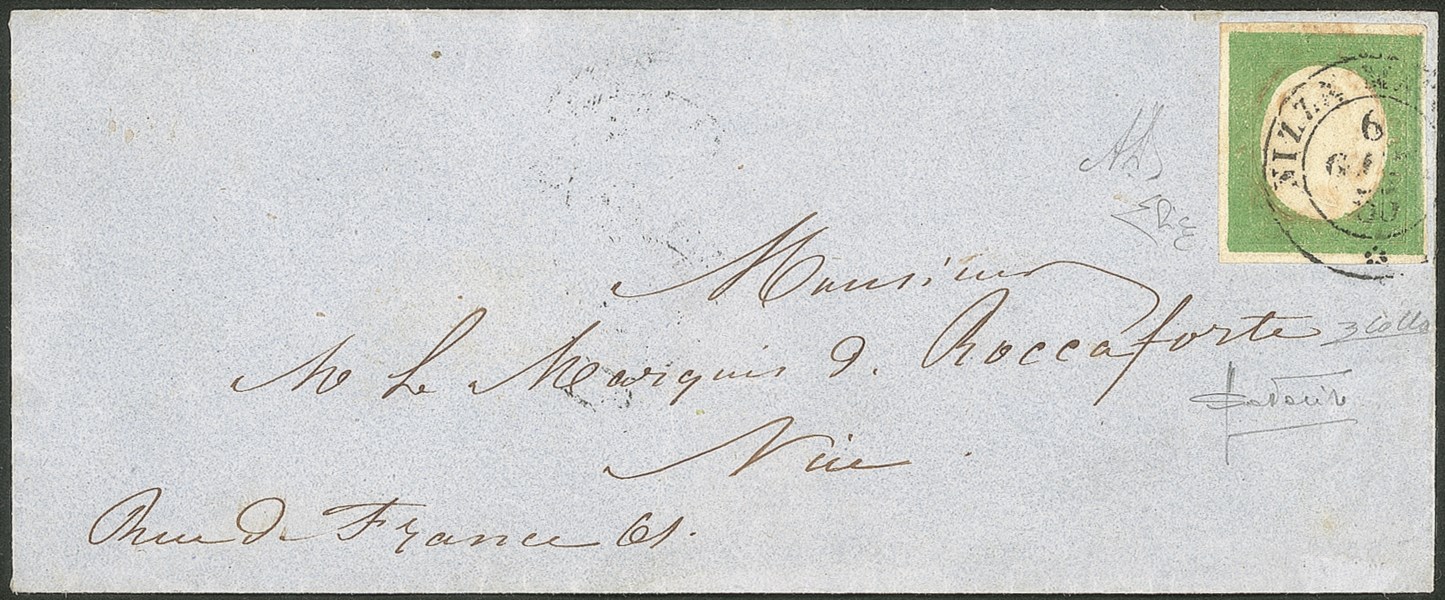 NIZZA
6
GEN
Monsieur
M Le Marquis d. Roccaforte
Nice
Rue d. France 61.